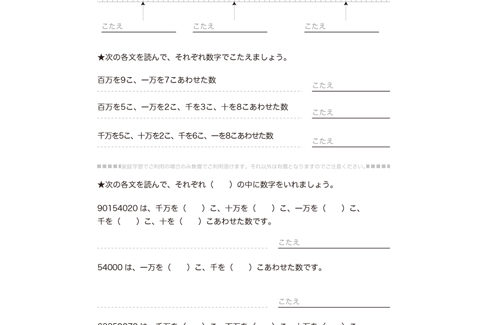 こたえ こたえ こたえ
★次の各文を読んで、それぞれ数字でこたえましょう。
百万を9こ、一万を7こあわせた数
こたえ
百万を5こ、一万を2こ、千を3こ、十を8こあわせた数
こたえ
千万を5こ、十万を2こ、千を6こ、一を8こあわせた数
こたえ
★次の各文を読んで、それぞれ（　　）の中に数字をいれましょう。
90154020 は、千万を（　　）こ、十万を（　　）こ、一万を（　　）こ、
千を（　　）こ、十を（　　）こあわせた数です。
こたえ
54000 は、一万を（　　）こ、千を（　　）こあわせた数です。
こたえ